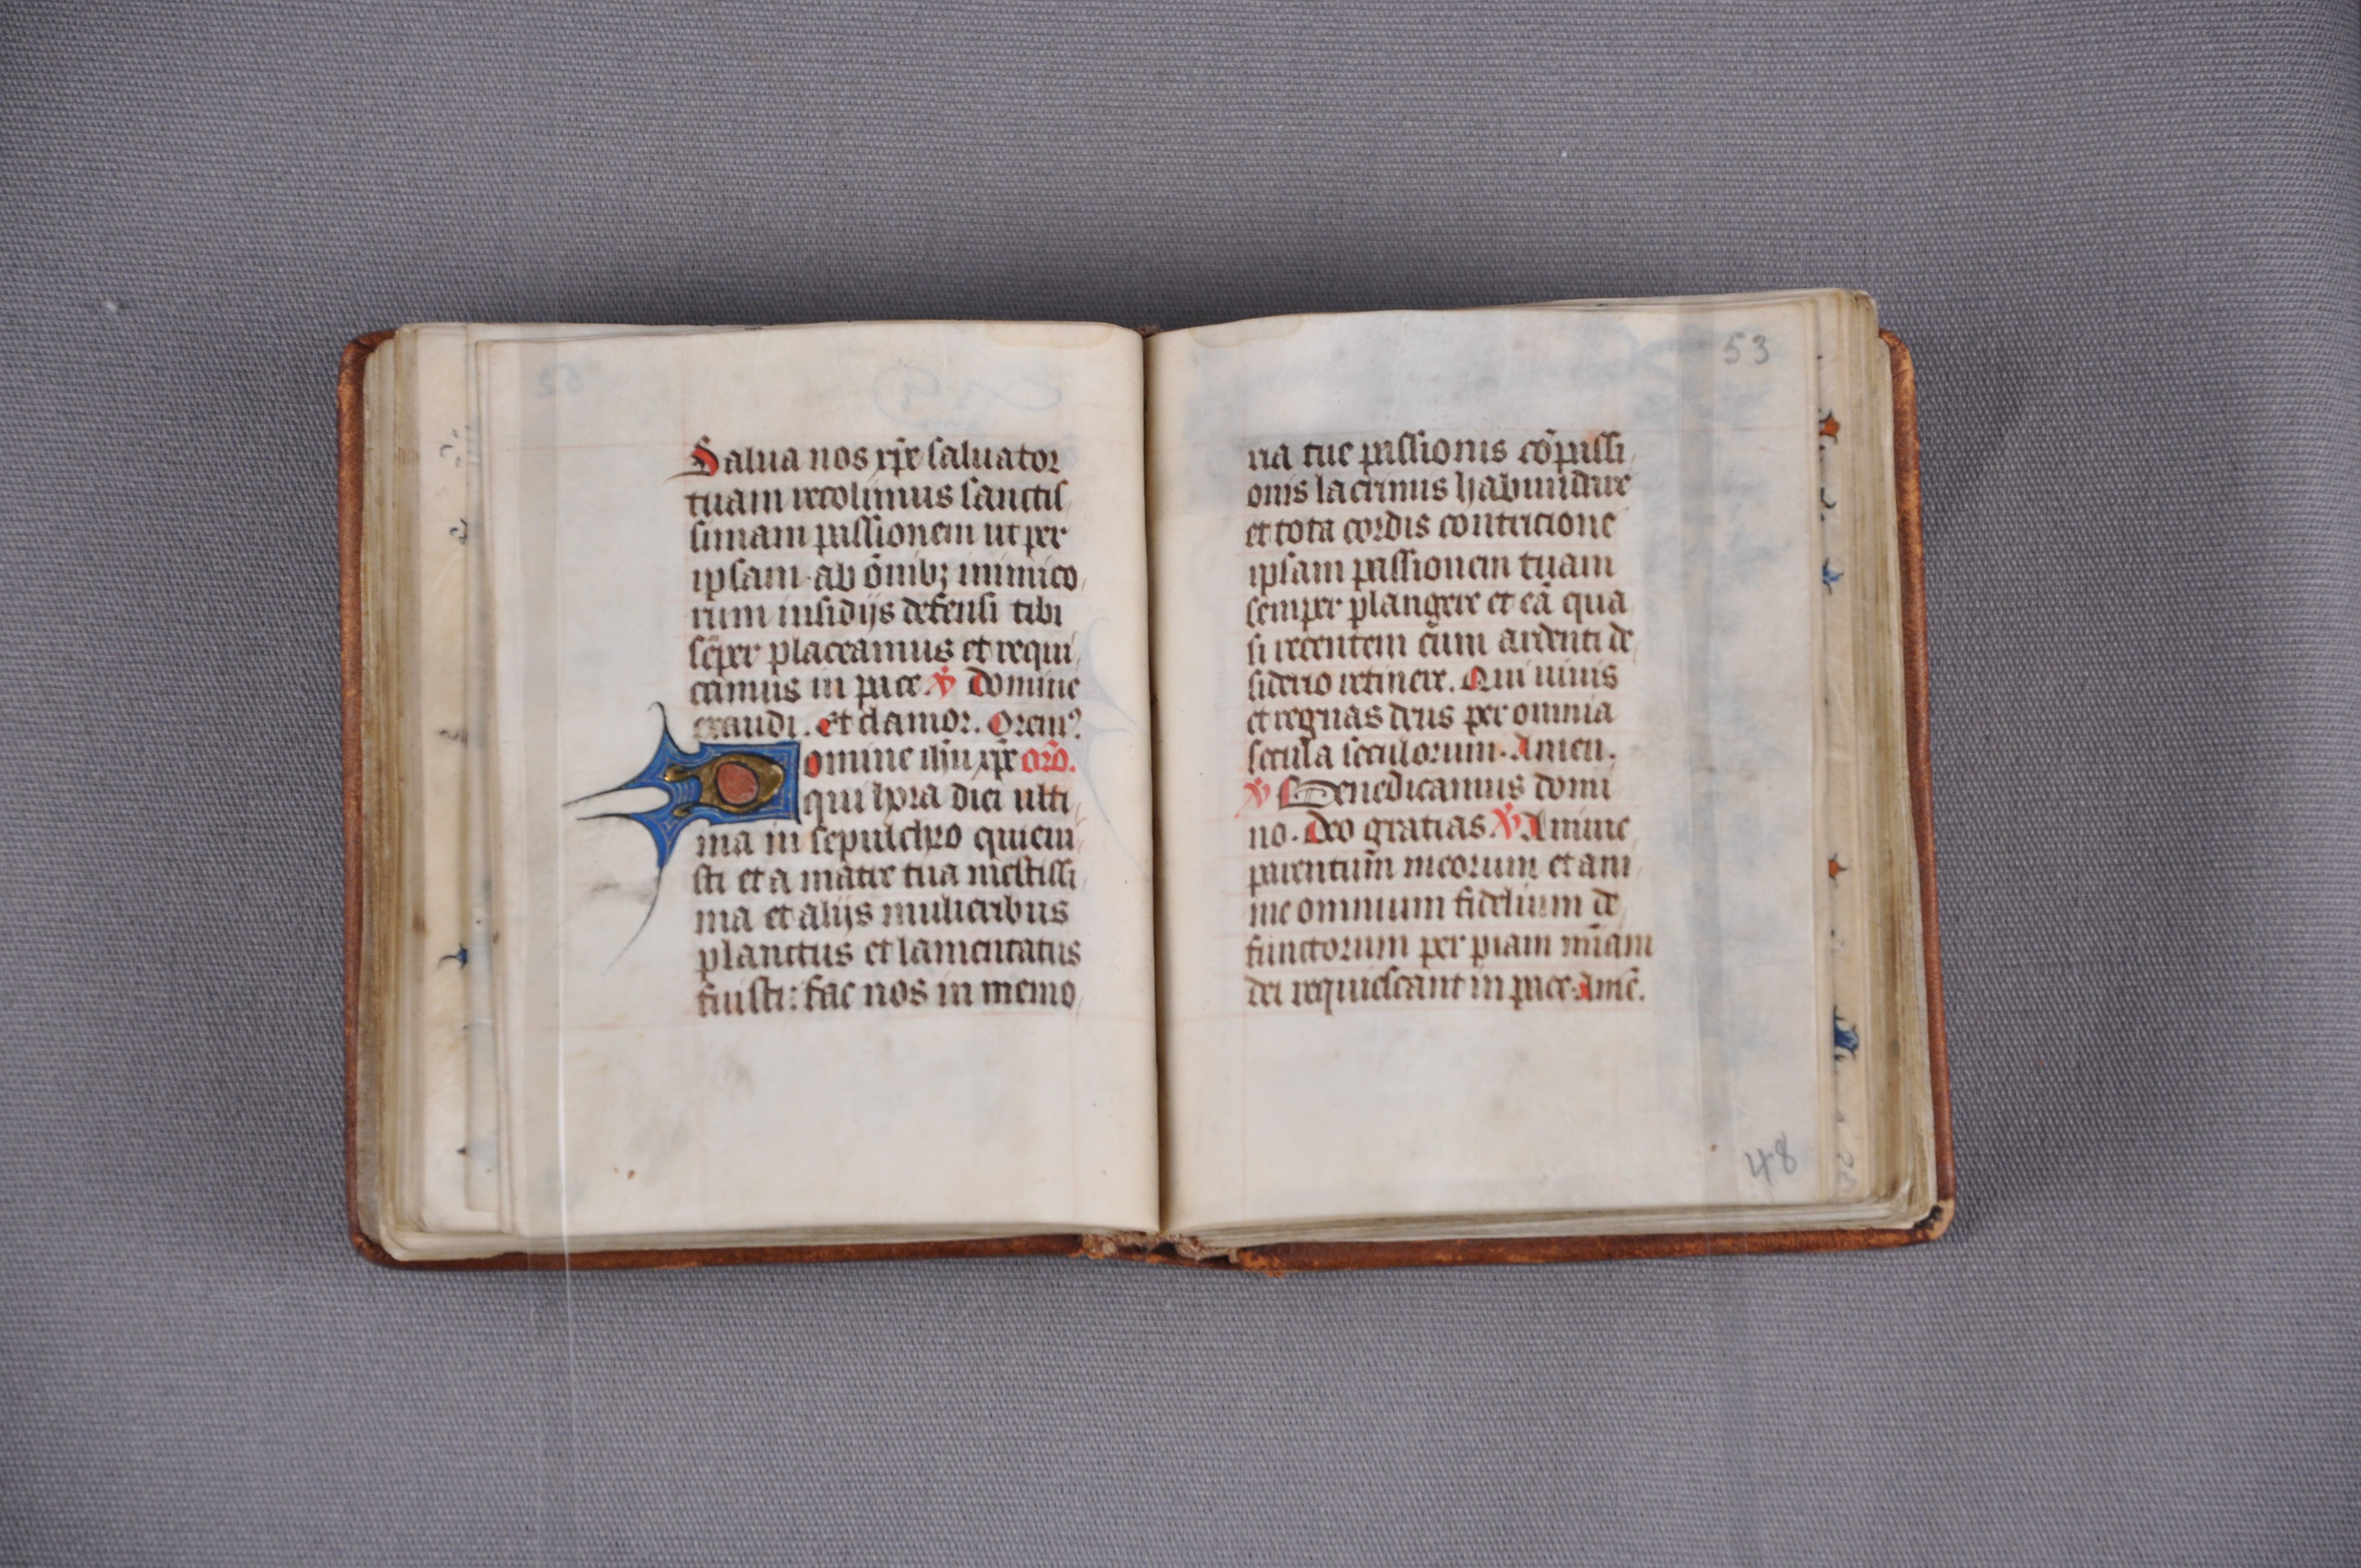 Salua nos xpe saluator
tuam recolimus sanctis
simam passionem ut per
ipsam ab omibꝫ inimico
rum insidijs defensi tibi
sēper placeamus et requi
camus in pace. ℣ Domine
exaudi. et clamor. Oremꝰ
Domine ihū xpe orō.
qui hora diei ulti
ma in sepulchro quieui
sti et a matre tua mestissi
ma et alijs mulieribus
planctus et lamentatus
fuisti: fac nos in memo
53
ria tue passionis cōpassi
onis lacrimis habundare
et tota cordis contricione
ipsam passionem tuam
semper plangere et eā qua
si recentem cum ardenti de
siderio retinere. Qui uiuis
et regnas deus per omnia
secula seculorum. Amen.
℣ Benedicamus domi
no. Deo gratias ℣ Anime
parentum meorum et ani
me omnium fidelium de
functorum per piam mīam
dei requiescant in pace. Amē.
48